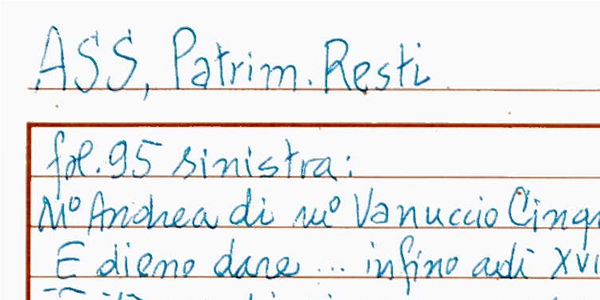 ASS, Patrim. Resti
fol. 95 sinistra:
Mº Andrea di mº Vanuccio Cinq
E dieno dare ... infino adi XVI